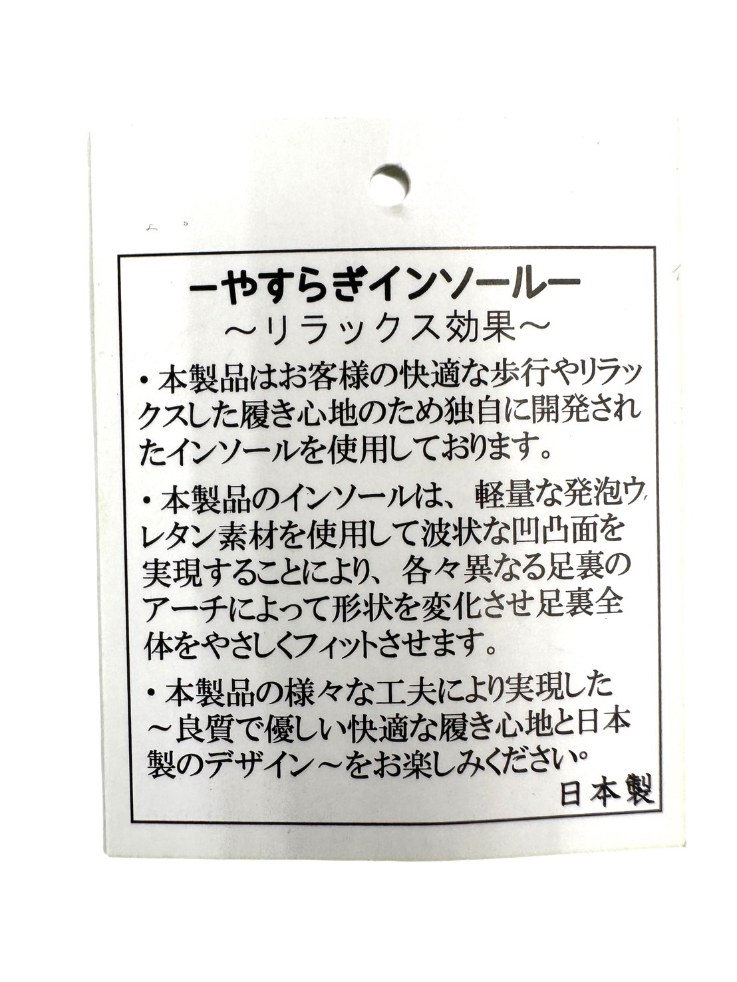 ーやすらぎインソールー
～リラックス効果～
・本製品はお客様の快適な歩行やリラッ
クスした履き心地のため独自に開発され
たインソールを使用しております。
・本製品のインソールは、軽量な発泡ウ
レタン素材を使用して波状な凹凸面を
実現することにより、各々異なる足裏の
アーチによって形状を変化させ足裏全
体をやさしくフィットさせます。
・本製品の様々な工夫により実現した
～良質で優しい快適な履き心地と日本
製のデザイン～をお楽しみください。
日本製